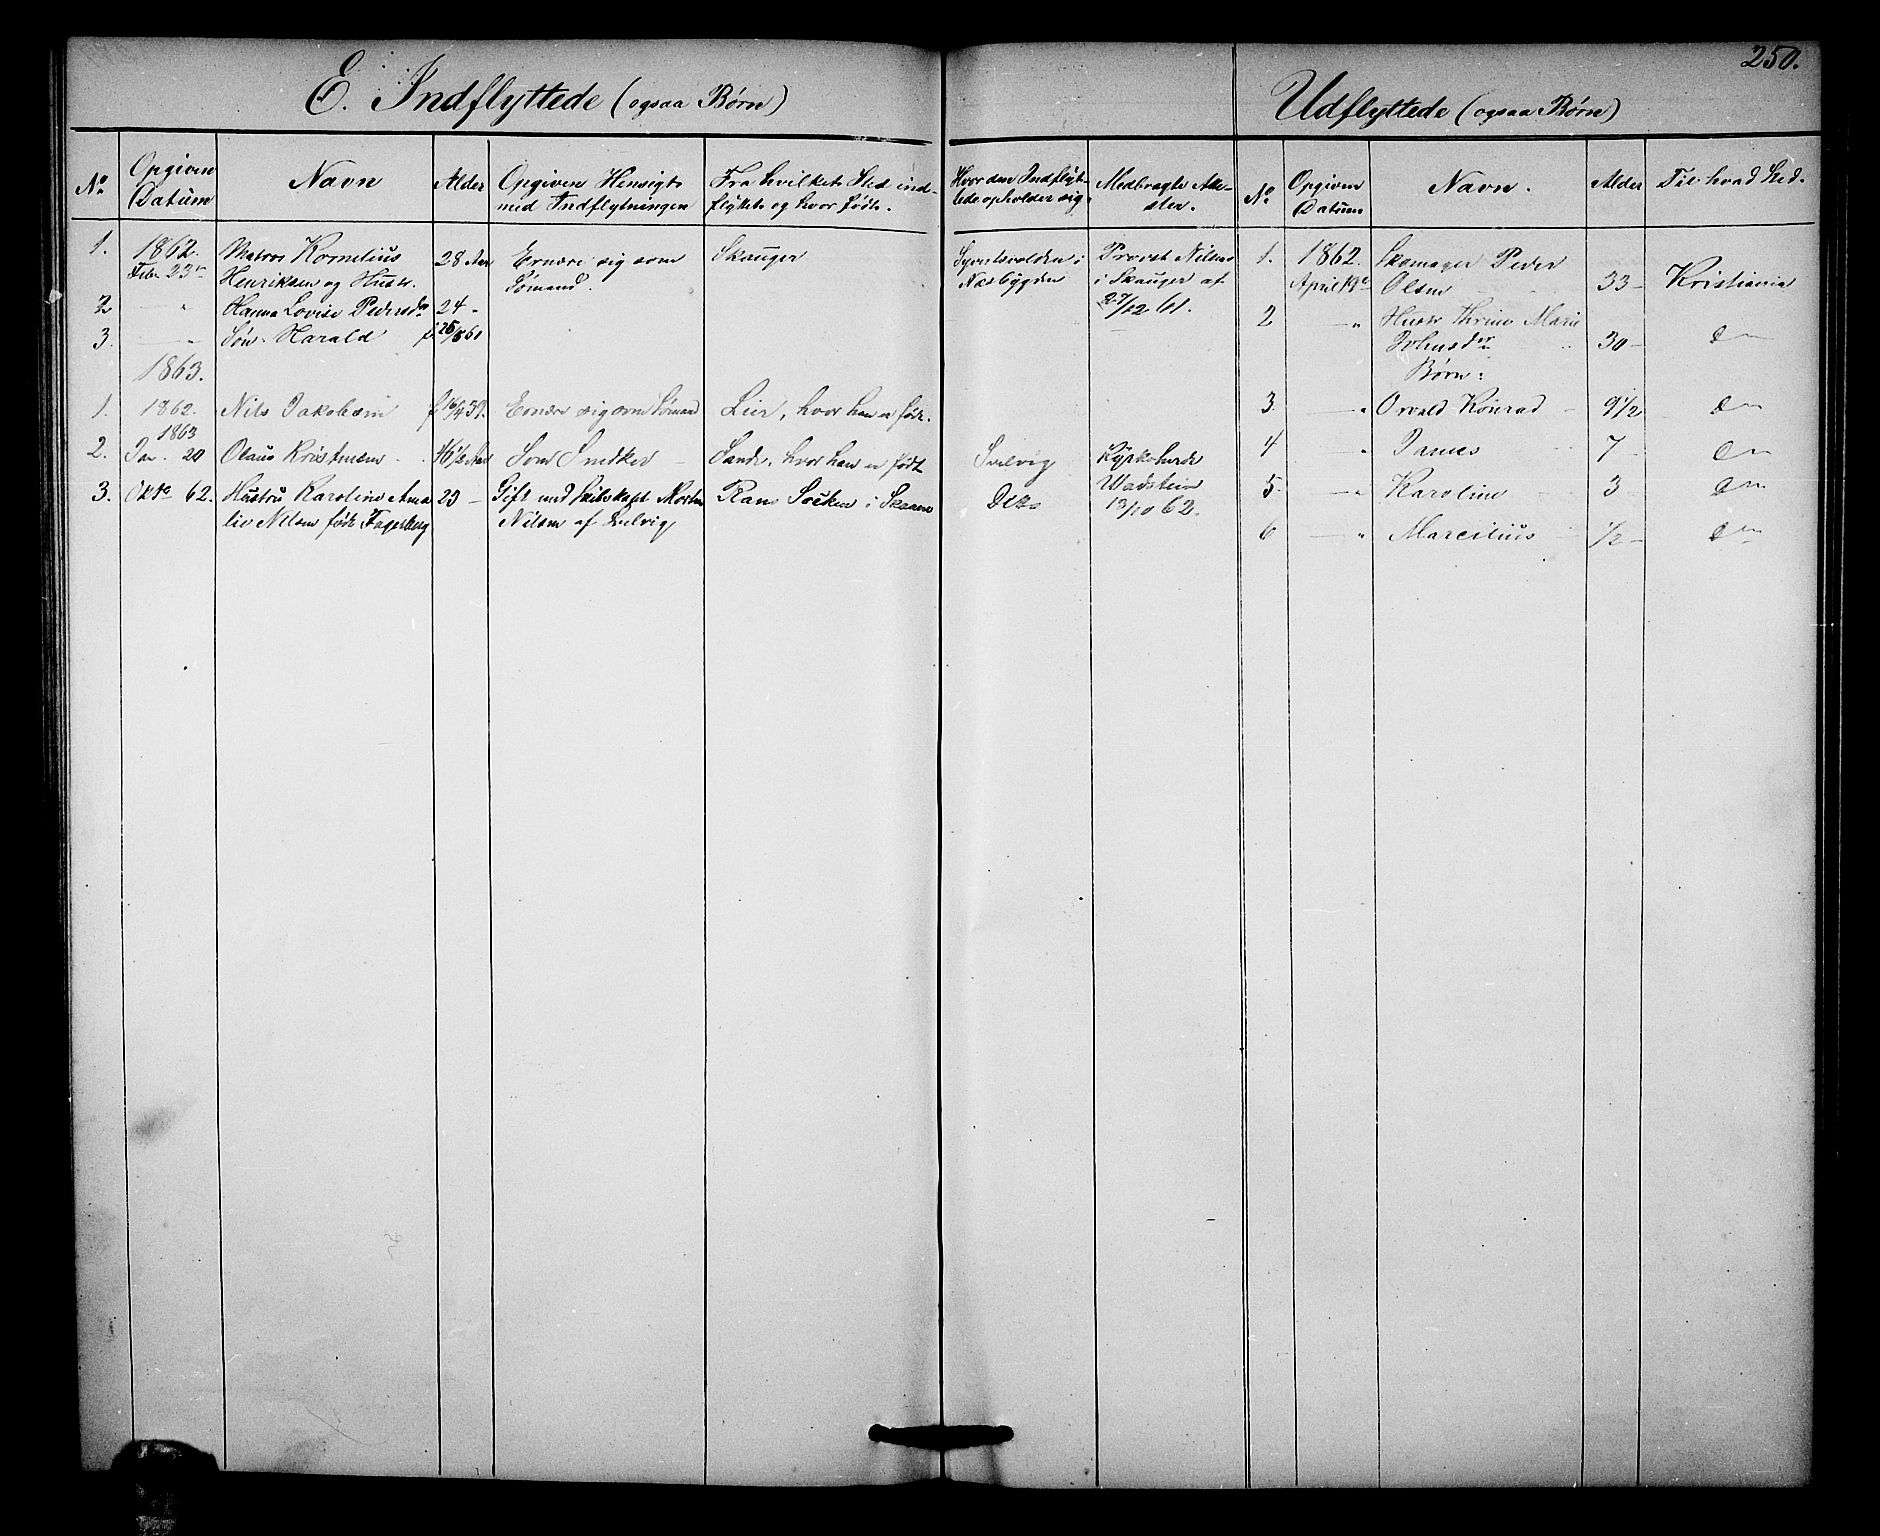 250.
E. Indflyttede (ogsaa Børn)
No
Opgiven Datum
Navn
Alder
Opgiven Hensigt med Indflytningen
Fra hvilket Sted indflyttet og hvor født.
Hvor den Indflyttede opholder sig.
Medbragte Attester.
1. 1862. Febr 23 Matros Kornelius Henriksen og Hustr. 28 Aar Ernære sig som Sømand. Skauger i Næsbygden Provst Nilsen i Skauger af 27/12 61.
2 — " Hanna Lovise Pedersdr 24 -
3. — " Søn. Harald
1863.
1. 1862. Nils Jakobsen Ernære sig som Sømand Lier, hvor han er født.
2. 1863 Jan. 20 Olaus Kristensen 16 1/2 Aar Som Snedker — Sande, hvor han er født Svelvig
3. Oktr 62. Hustru Karoline Amalie Nilsen født Fagerberg 23 — Gift med Morten Nilsen af Svelvig i Skaane Dito Kyrkoherde Wadstein 13/10 62.
Udflyttede (ogsaa Børn)
No
Opgiven Datum
Navn.
Alder
Til hvad Sted.
1. 1862. April Skomager Peder Olsen 33 — Kristiania
2 — " Hustr Thrine Marie Johnsdr 30 — do
Børn:
3. — " Osvald Konrad 9 1/2 do
4 — " James 7 — do
5. — " Karoline 3 do
6 — " Marcilius 1/2 — do